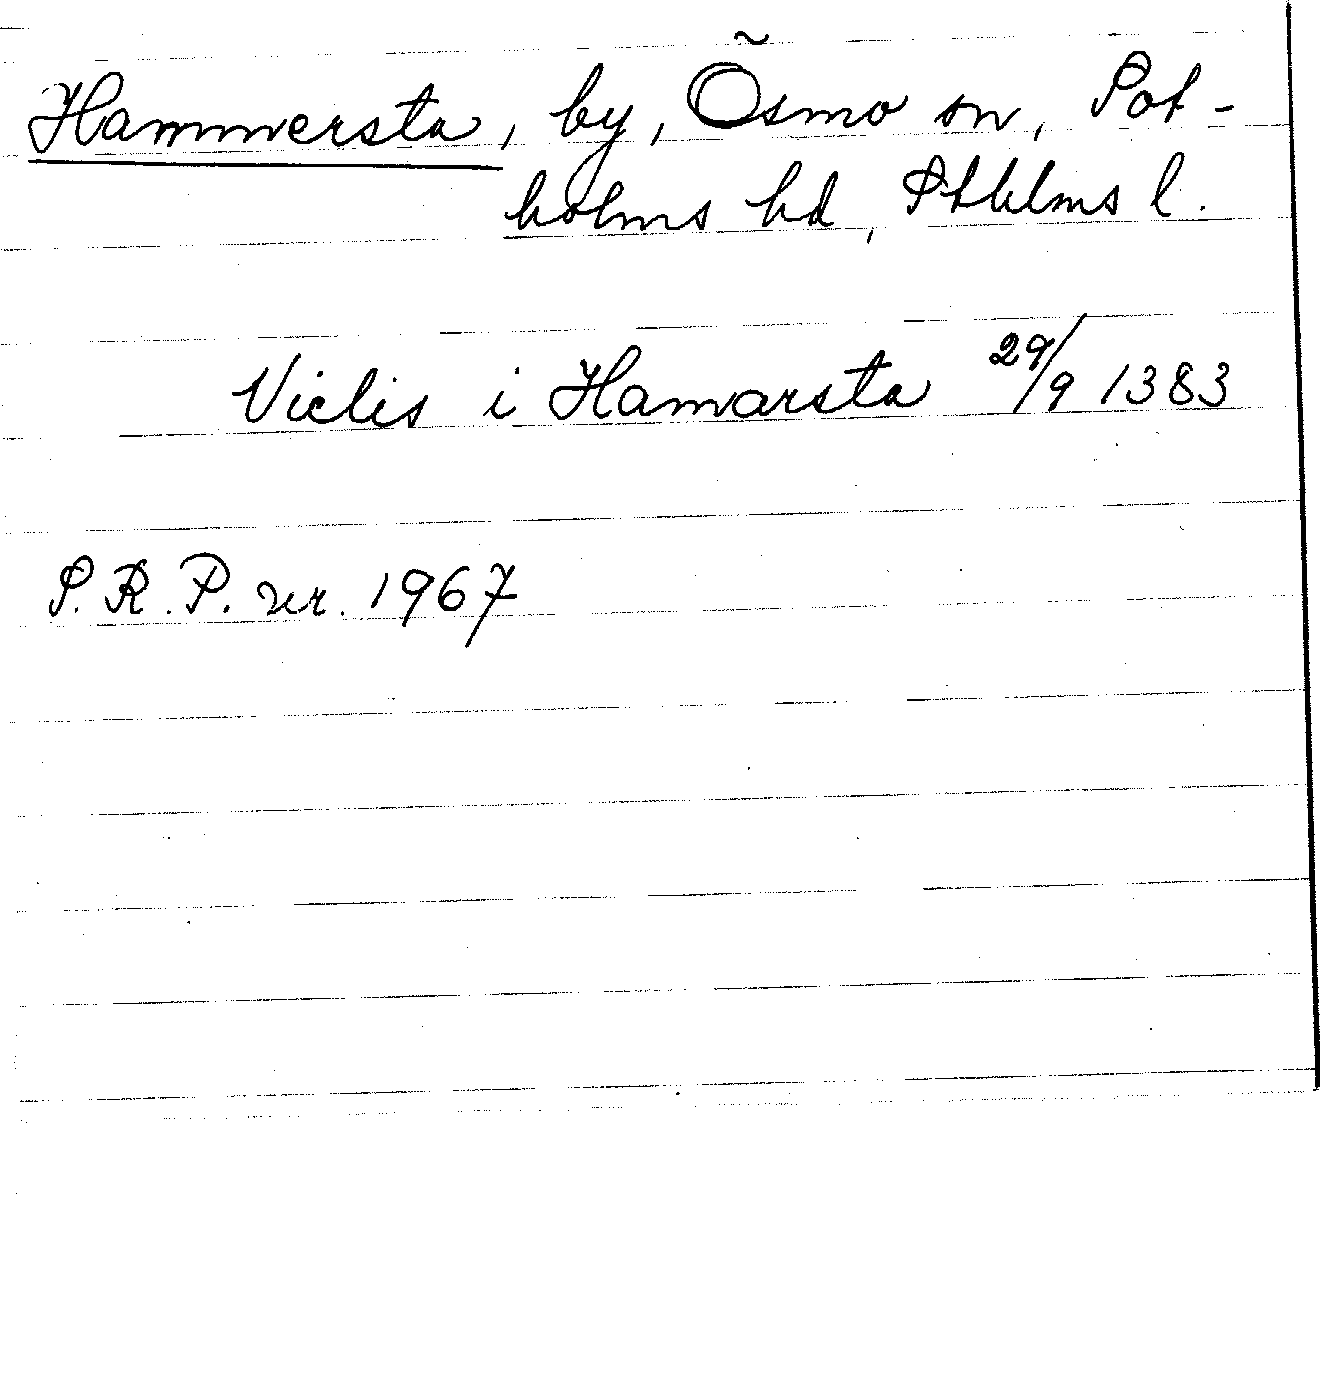 Hammersta, by, Ösmo sn, Sot-
holms hd, Sthlms l.
Viclis i Hamarsta 29/9 1383
S.R.P. nr. 1967